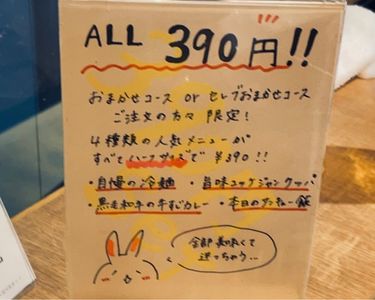 ALL 390円!!
おまかせコース or セレブおまかせコース
ご注文の方々 限定！
4種類の人気メニューが
すべてハーフサイズで ¥390!!
・自慢の冷麺 ・旨味ユッケジャンクッパ
・黒毛和牛の牛すじカレー ・本日のガンギー飯
全部美味くて
迷っちゃう...